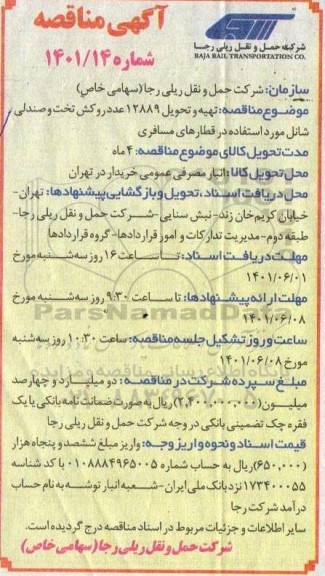 آگهی مناقصه
شماره ۱۴۰۱/۱۴
شرکت حمل و نقل ریلی رجا
RAJA RAIL TRANSPORTATION CO.
سازمان: شرکت حمل و نقل ریلی رجا (سهامی خاص)
موضوع مناقصه: تهیه و تحویل ۱۲۸۸۹ عدد روکش تخت و صندلی
شانل مورد استفاده در قطارهای مسافری
مدت تحویل کالای موضوع مناقصه: ۴ ماه
محل تحویل کالا: انبار مصرفی عمومی خریدار در تهران
محل دریافت اسناد، تحویل و بازگشایی پیشنهادها: تهران-
خیابان کریم خان زند- نبش سنایی- شرکت حمل و نقل ریلی رجا-
طبقه دوم- مدیریت تدارکات و امور قراردادها- گروه قراردادها
مهلت دریافت اسناد: تا ساعت ۱۶ روز سه شنبه مورخ
۱۴۰۱/۰۶/۰۱
مهلت ارائه پیشنهادها: تا ساعت ۹:۳۰ روز سه شنبه مورخ
۱۴۰۱/۰۶/۰۸
ساعت و روز تشکیل جلسه مناقصه: ساعت ۱۰:۳۰ روز سه شنبه
مورخ ۱۴۰۱/۰۶/۰۸
مبلغ سپرده شرکت در مناقصه: دو میلیارد و چهارصد
میلیون (۲,۴۰۰,۰۰۰,۰۰۰) ریال به صورت ضمانت نامه بانکی یا یک
فقره چک تضمینی بانکی در وجه شرکت حمل و نقل ریلی رجا
قیمت اسناد و نحوه واریز وجه: واریز مبلغ ششصد و پنجاه هزار
(۶۵۰,۰۰۰) ریال به حساب شماره ۰۱۰۸۸۸۴۹۶۵۰۰۵ با کد شناسه
۱۷۳۴۰۰۰۵۵ نزد بانک ملی ایران- شعبه انبار توشه به نام حساب
درآمد شرکت رجا
سایر اطلاعات و جزئیات مربوط در اسناد مناقصه درج گردیده است.
شرکت حمل و نقل ریلی رجا (سهامی خاص)